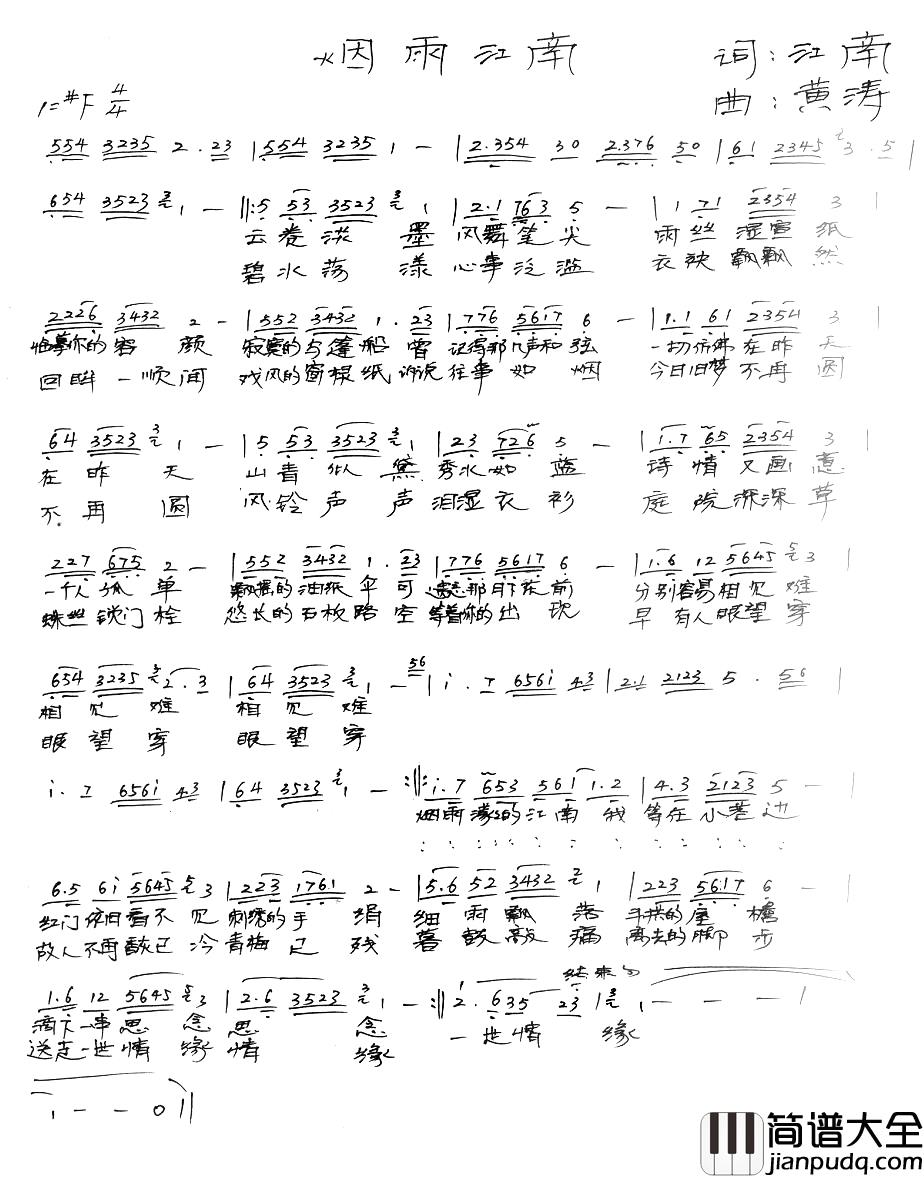 烟雨江南
词:江南
曲:黄涛
1=#F 4/4
554 3235 2.23 | 554 3235 1 — | 2.354 30 2.376 50 | 61 2345 3.5 |
654 3523 1 — ‖: 5 53 3523 1 | 2.1 763 5 — | 1 71 2354 3 |
云卷淡墨 风舞笔尖 雨丝湿宣纸
碧水荡漾 心事泛滥 衣袂飘飘然
2226 3432 2 — | 552 3432 1.23 | 776 5617 6 — | 1.1 61 2354 3 |
临摹你的容颜 寂寞的乌篷船 曾记得那几声和弦 一切仿佛在昨天
回眸一瞬间 戏风的窗棂纸 诉说往事如烟 今日旧梦不再圆
64 3523 1 — | 5 53 3523 1 | 23 726 5 — | 1.7 65 2354 3
在昨天 山青似黛 秀水如蓝 诗情又画意
不再圆 风铃声声 泪湿衣衫 庭院深深草
227 675 2 — | 552 3432 1.23 | 776 5617 6 — | 1.6 12 5645 3 |
一个人孤单 飘摇的油纸伞 可 那月下花前 分别容易相见难
蛛丝锁门栓 悠长的石板路 空等着你的出现 早有人眼望穿
654 3235 2.3 | 64 3523 1 — 56 | i.7 656i 43 | 2.1 2123 5.56 |
相见难 相见难
眼望穿 眼望穿
i.7 656i 43 | 64 3523 1 — :‖: i.7 653 561 1.2 | 4.3 2123 5 — |
烟雨濛的江南 我等在小巷边
6.5 6i 5645 3 | 223 1761 2 — | 5.6 52 3432 1 | 223 5617 6 — |
红门依旧看不见 刺绣的手绢 细雨飘落 斗拱的屋檐
故人不再 已冷青梅已残 暮鼓敲痛 离去的脚步
1.6 12 5645 3 | 2.6 3523 1 — :‖ 2.635 23 | 1 — — — |
结束句
滴下一串思念 思念 一世情缘
送走一世情缘 情缘
1 — — 0 ‖
简谱大全
jianpudq.com